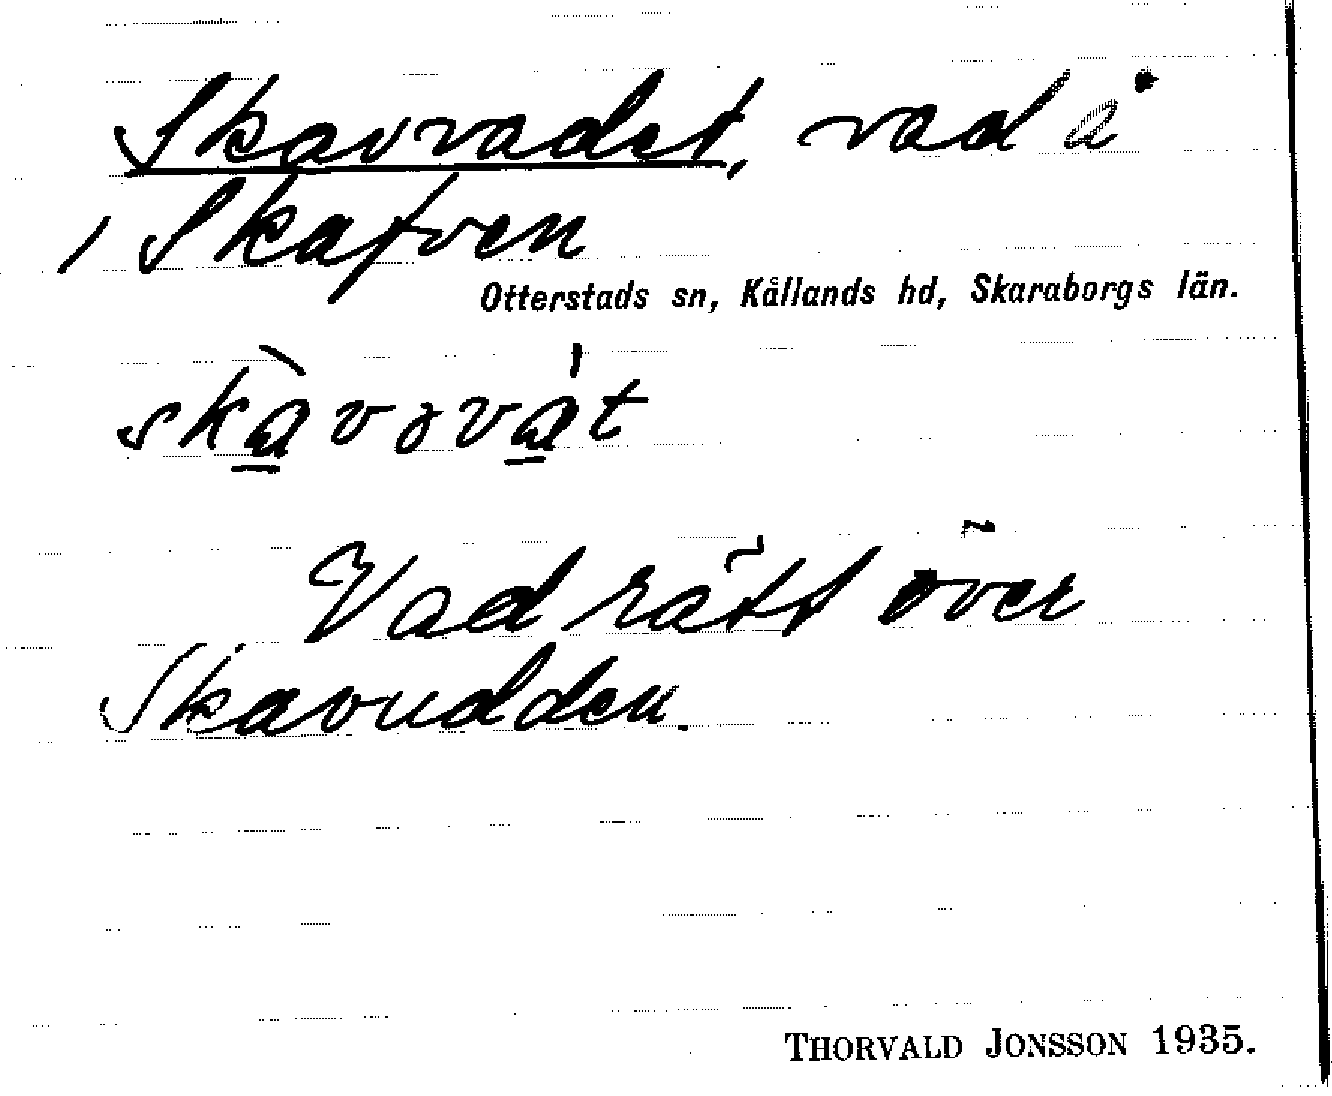 Skavvadet, vad å
/ Skafven
Otterstads sn, Kållands hd, Skaraborgs län.
skàvəvát
Vad rätt över
Skavudden.
THORVALD JONSSON 1935.